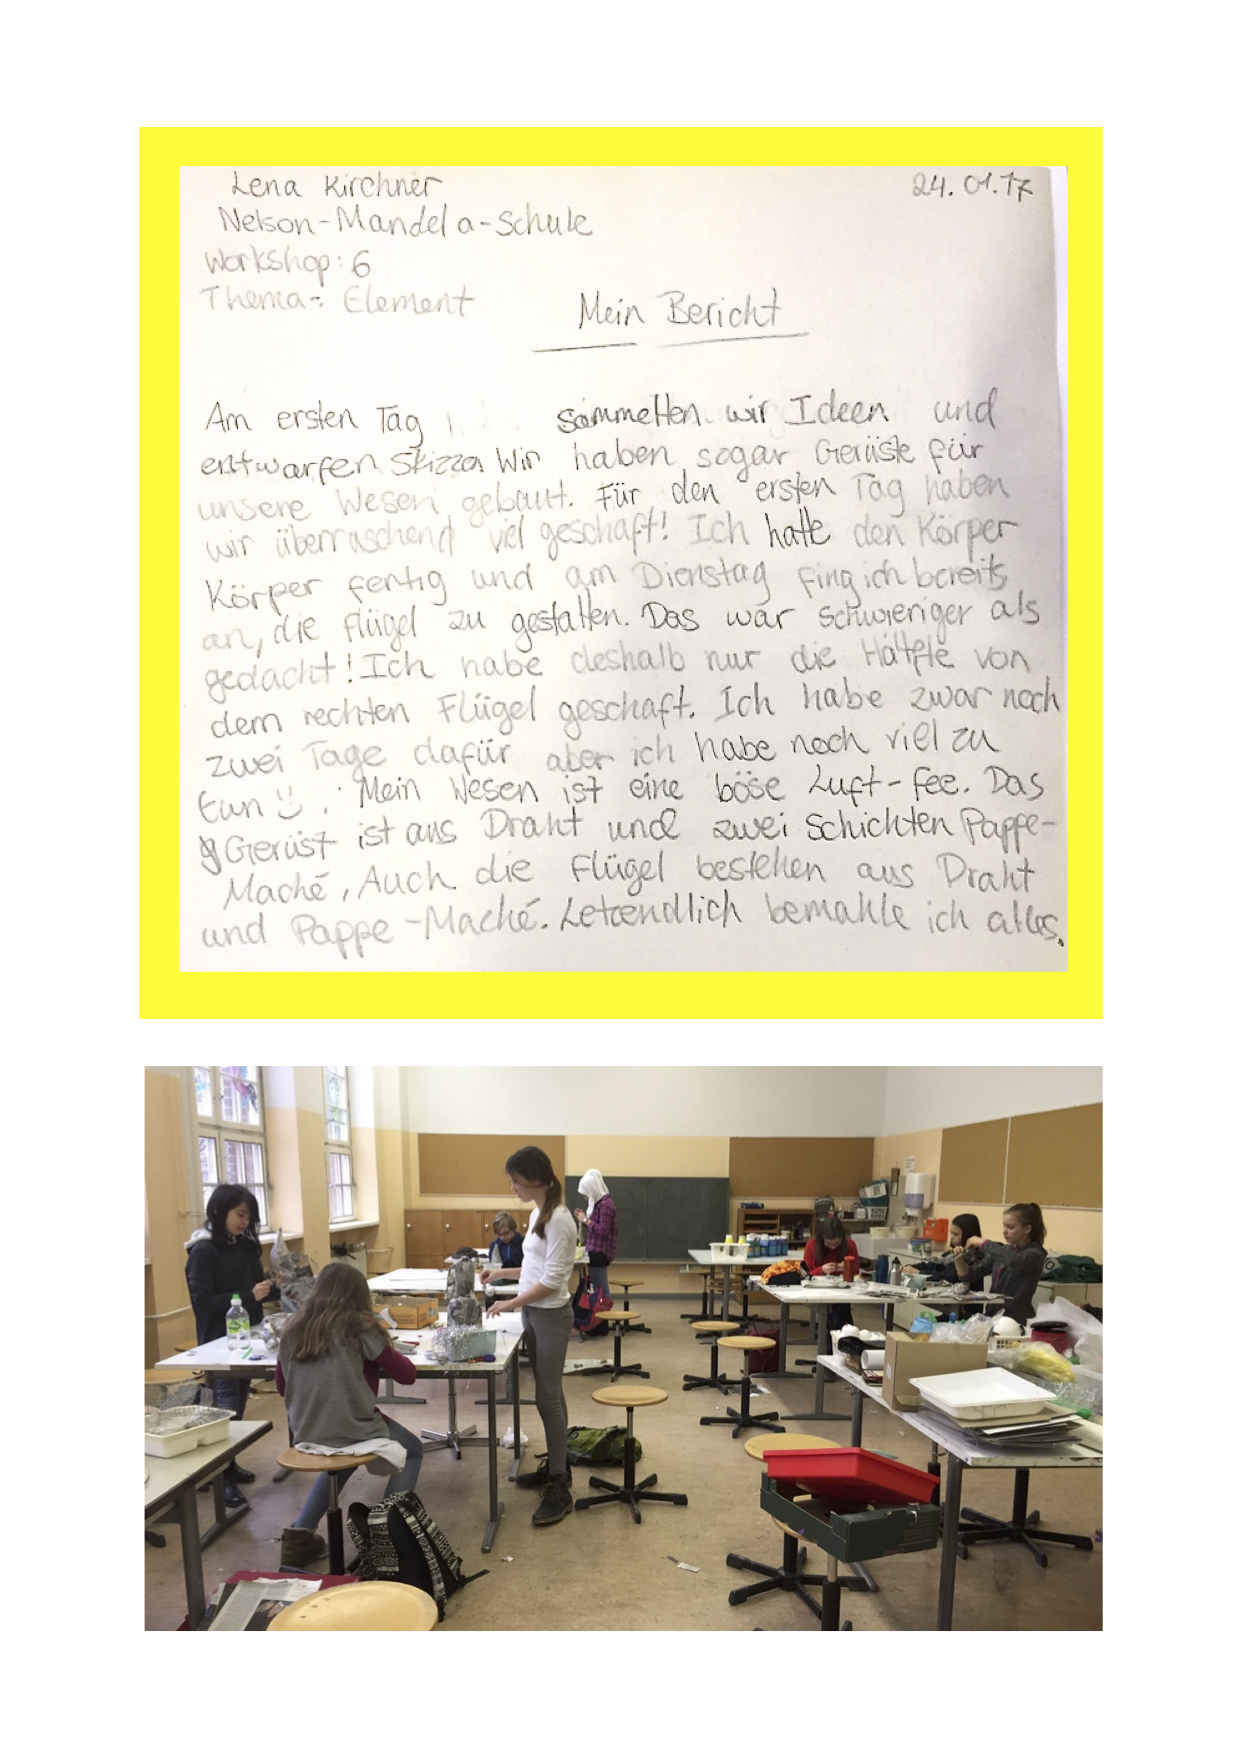 Lena Kirchner
24.01.17
Nelson-Mandela-Schule
Workshop: 6
Thema: Element
Mein Bericht
Am ersten Tag sammelten wir Ideen und
entwarfen Skizzen Wir haben sogar Gerüste für
unsere Wesen gebaut. Für den ersten Tag haben
wir überraschend viel geschaft! Ich hatte den Körper
Körper fertig und am Dienstag fing ich bereits
an, die flügel zu gestalten. Das war schwieriger als
gedacht! Ich habe deshalb nur die Hälfte von
dem rechten Flügel geschaft. Ich habe zwar noch
zwei Tage dafür aber ich habe noch viel zu
tun. Mein Wesen ist eine böse Luft-Fee. Das
Gerüst ist aus Draht und zwei Schichten Pappe-
Maché, Auch die Flügel bestehen aus Draht
und Pappe-Maché. Letzendlich bemahle ich alles.